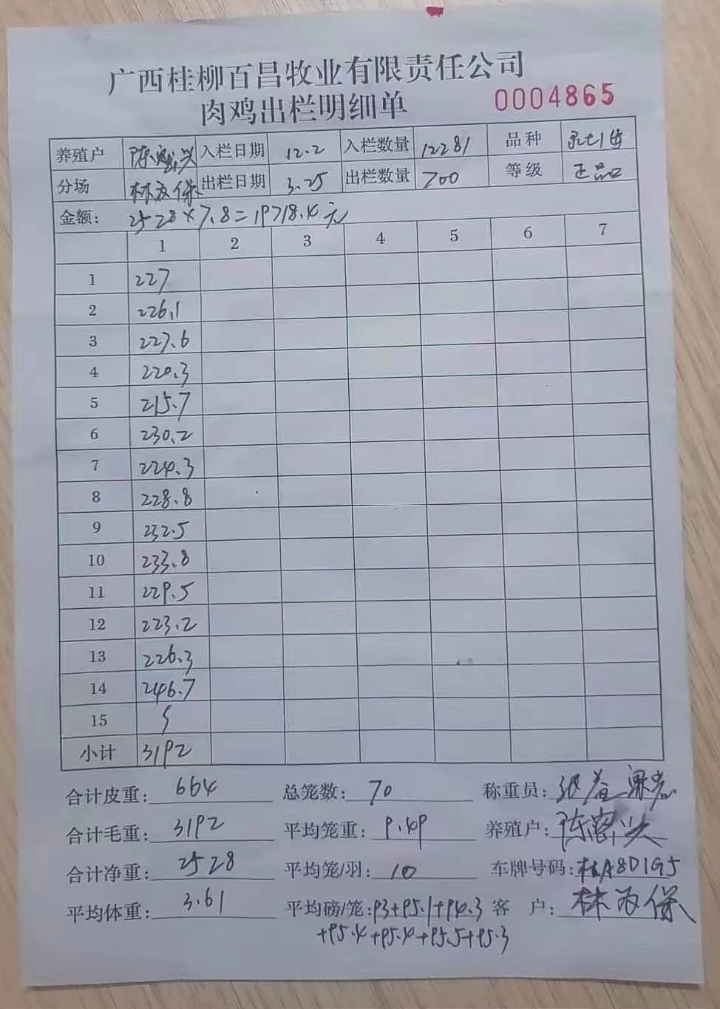 广西桂柳百昌牧业有限责任公司
肉鸡出栏明细单 0004865
养殖户 入栏日期 12.2 入栏数量 12281 品种
分场 林友保 出栏日期 3.25 出栏数量 700 等级 正品
金额: 2528×7.8=19718.4元
1 2 3 4 5 6 7
1 227
2 226.1
3 227.6
4 220.3
5 215.7
6 230.2
7 224.3
8 228.8
9 232.5
10 233.8
11 229.5
12 223.2
13 226.3
14 246.7
15
小计 3192
合计皮重: 664 总笼数: 70 称重员:
合计毛重: 3192 平均笼重: 9.49 养殖户:
合计净重: 2528 平均笼/羽: 10 车牌号码: 桂A8D1G5
平均体重: 3.61 平均磅/笼: 93+95.1+94.3 客 户: 林友保
+95.4+95.4+95.5+95.3